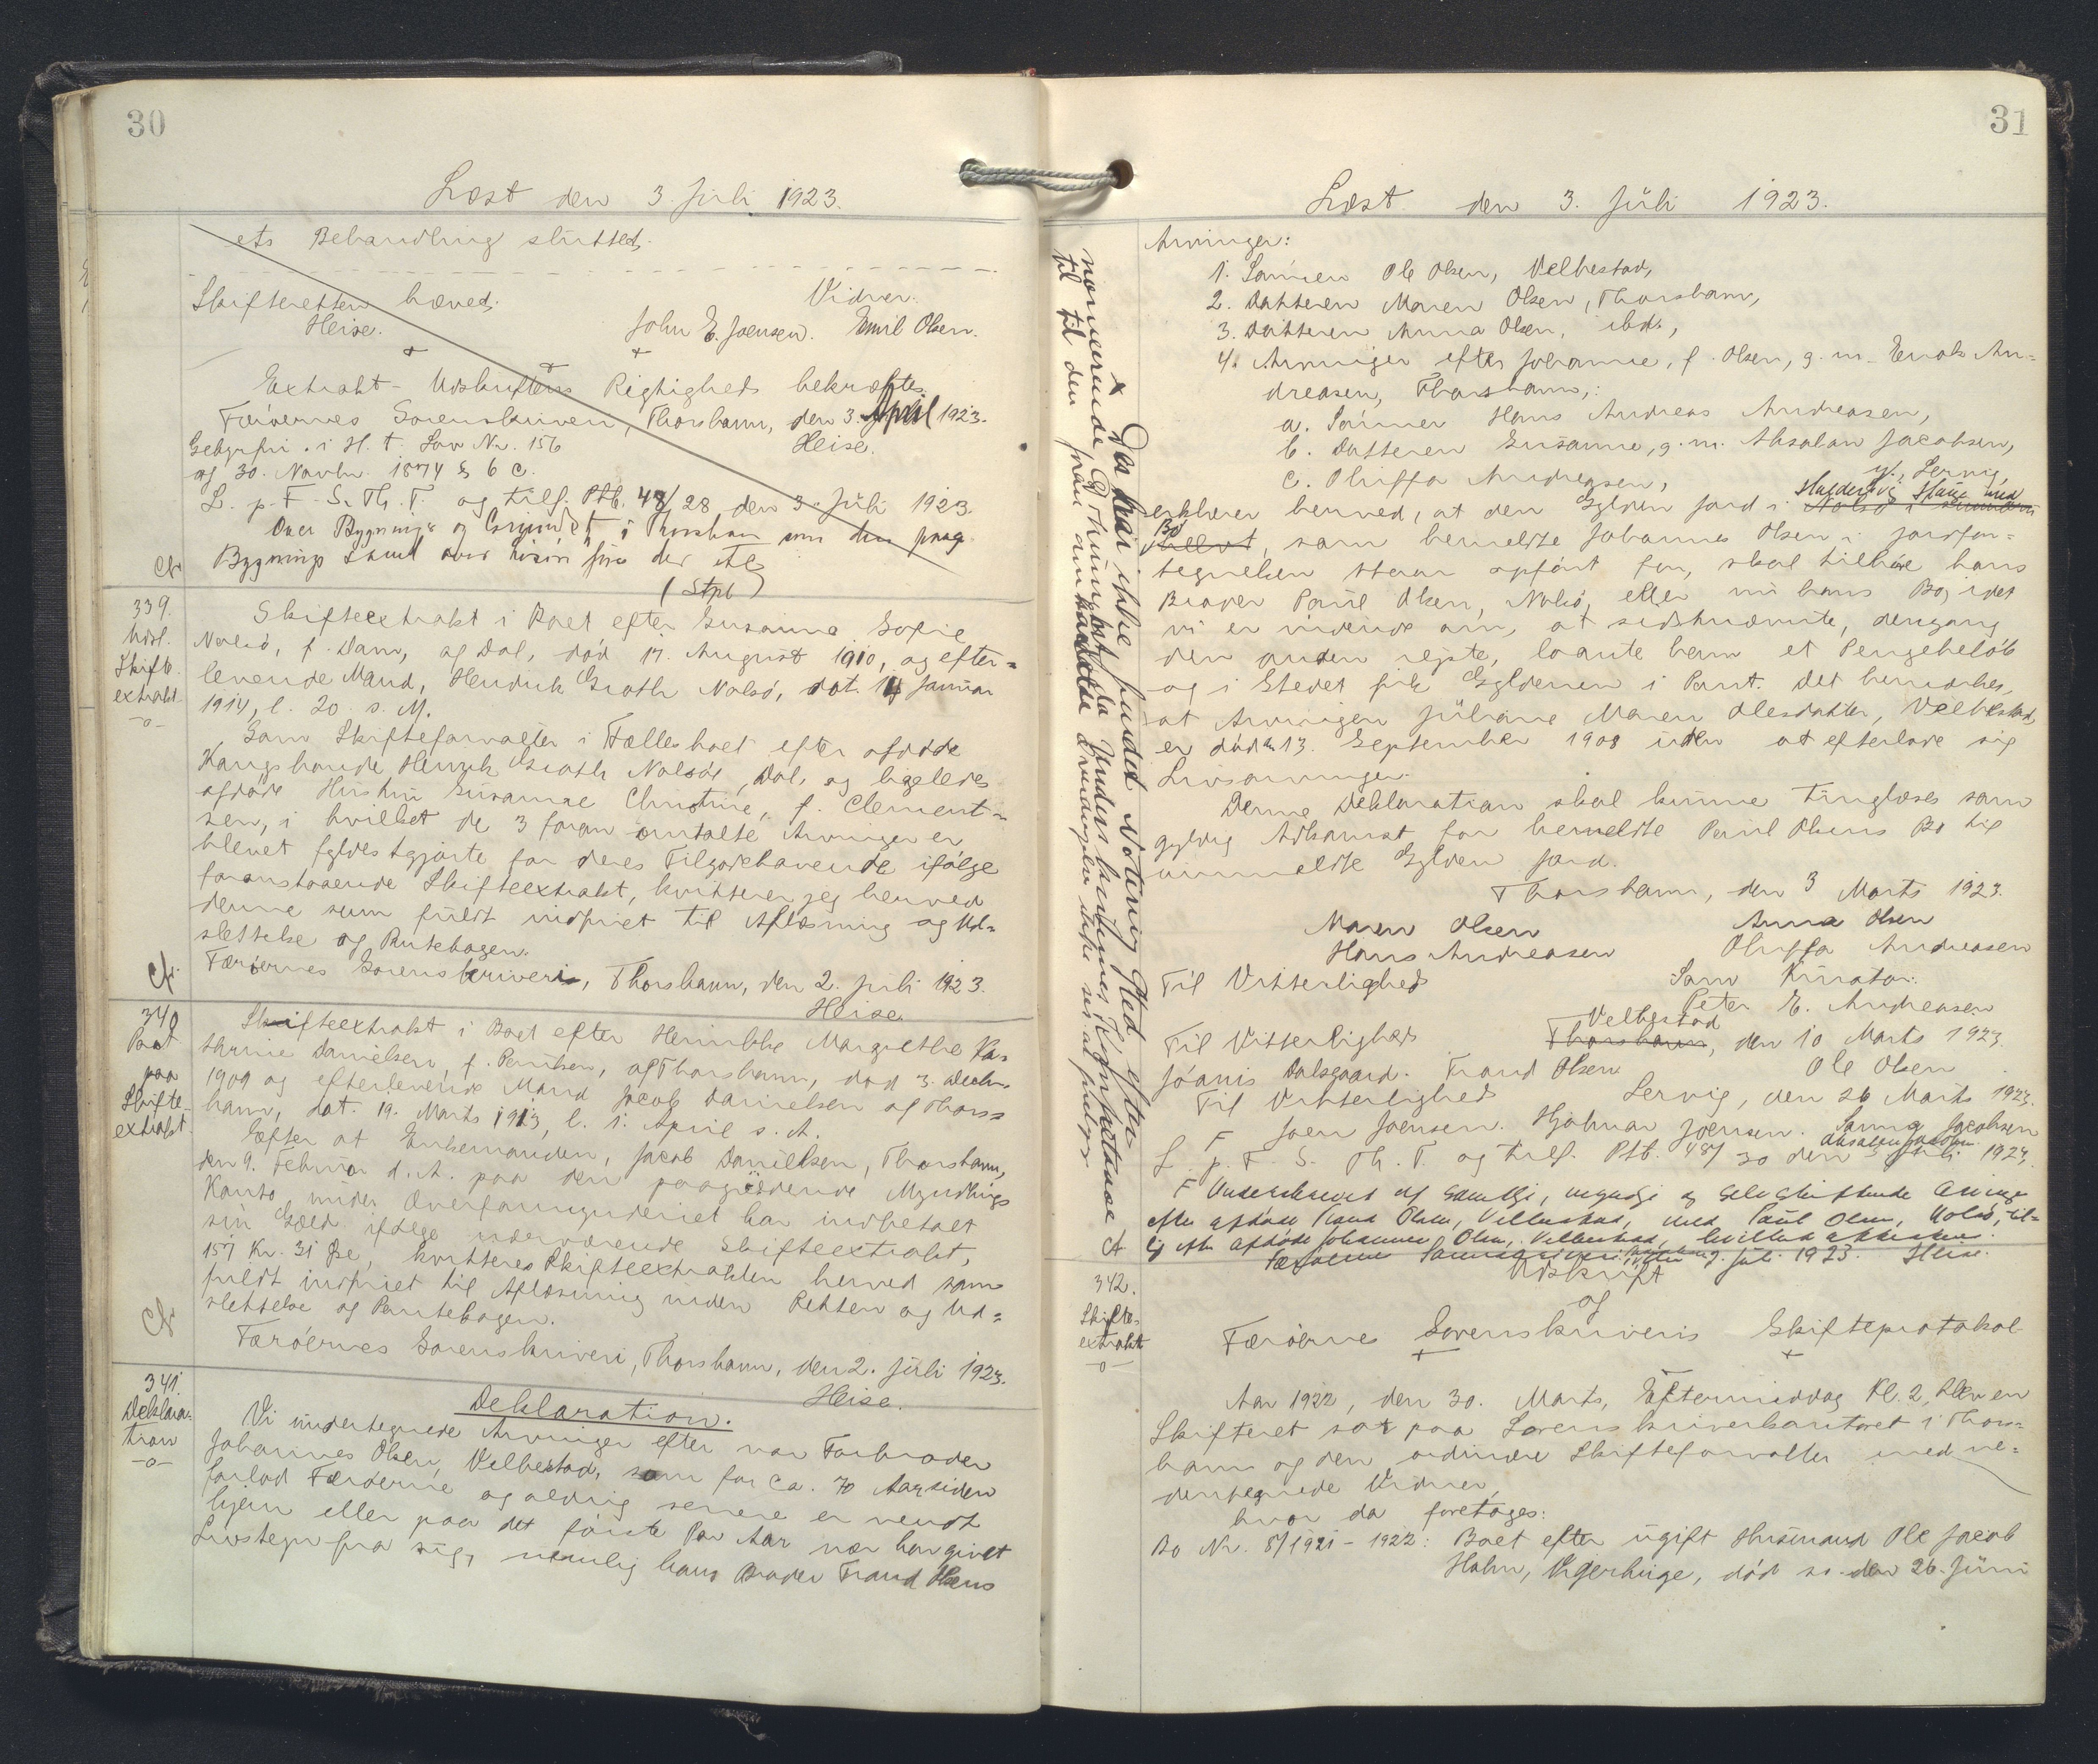 30
Læst den 3. Juli 1923.
ets Behandling sluttet.
Skifteretten hævet.
Heise.
Vidner.
John E. Joensen. Emil Olsen.
Extrakt-Udskriftens Rigtighed bekræftes
Færøernes Sorenskriveri, Thorshavn, den 3. April 1923.
Gebyrfri i H. t. Lov Nr. 156
Heise.
af 30. Novbr. 1874 § 6 c.
L. p. F. S. Th. T. og tilf. Ptb. 48/28 den 3. Juli 1923.
Bygnings
Cfr
(Stpb)
339.
Udsl.
Skifte
extrakt
-o-
Skifteextrakt i Boet efter Susanna Sofie
Nolsø, f. Dam, af Dal, død 17. August 1910, og efter=
levende Mand, Hendrik Groth Nolsø, dat. 14 Januar
1914, l. 20. s. M.
Som Skifteforvalter i Fællesboet efter afdøde
Kongsbonde Henrik Groth Nolsøe, Dal, og ligeledes
afdøde Hustru Susanne Christine, f. Clement=
sen, i hvilket de 3 foran omtalte Arvinger er
blevet fyldestgjorte for deres Tilgodehavende ifølge
foranstaaende Skifteextrakt, kvitterer jeg herved
denne som fuldt indfriet til Aflæsning og Ud=
slettelse og Pantebogen.
Cfr.
Færøernes Sorenskriveri, Thorshavn, den 2. Juli 1923.
Heise
340
Paat
paa
Skifte-
extrakt.
Skifteextrakt i Boet efter Henrikke Margrethe Ka=
thrine Danielsen, f. Poulsen, af Thorshavn, død 3. Decbr.
1909 og efterlevende Mand Jacob Danielsen af Thors=
havn, dat. 19. Marts 1913, l. 1. April s. A.
Efter at Enkemanden, Jacob Danielsen, Thorshavn,
den 9. Februar d. A. paa den paagjældende Myndlings
Konto under Overformynderiet har indbetalt
sin Gæld ifølge nærværende Skifteextrakt,
157 Kr. 31 Øre, kvitteres Skifteextrakten herved som
fuldt indfriet til Aflæsning inden Retten og Ud=
slettelse og Pantebogen.
Cfr
Færøernes Sorenskriveri, Thorshavn, den 2. Juli 1923.
Heise.
341.
Deklara-
tion
-o-
Deklaration.
Vi undertegnede Arvinger efter vor Farbroder
Johannes Olsen, Velbestad, som for ca. 70 Aar siden
forlod Færøerne og aldrig senere er vendt
hjem eller paa det første Par Aar nær har givet
Livstegn fra sig, nemlig hans Broder Trond Olsens
31
Læst den 3. Juli 1923.
Arvinger:
1. Sønnen Ole Olsen, Velbestad,
2. Datteren Maren Olsen, Thorshavn,
3. Datteren Anna Olsen, ibd.,
4. Arvinger efter Johanne, f. Olsen, g. m. Enok An=
dreasen, Thorshavn,:
a. Sønnen Hans Andreas Andreasen,
b. Datteren Susanne, g. m. Absalon Jacobsen,
gl. Lervig,
c. Oluffa Andreasen,
erklærer herved, at den Gylden Jord i Nolsø
Bø
, som bemeldte Johannes Olsen i Jordfor=
tegnelsen staar opført for, skal tilhøre hans
Broder Poul Olsen, Nolsø, eller nu hans Bo, idet
vi er vidende om, at sidstnævnte, dengang
den anden rejste, loante ham et Pengebeløb
og i Stedet fik Gyldenen i Pant. Det bemærkes,
at Arvingen Juliane Maren Olesdatter, Velbestad,
er død d. 13. September 1908 uden at efterlade sig
Livsarvinger.
Denne Deklaration skal kunne tinglæses som
gyldig Adkomst for bemeldte Poul Olsens Bo til
ommeldte Gylden Jord.
Thorshavn, den 3 Marts 1923.
Maren Olsen Anna Olsen
Hans Andreasen Oluffa Andreasen
Til Vitterlighed Som Kurator:
Peter E. Andreasen
Velbestad
Til Vitterlighed Thorshavn, den 10 Marts 1923
Jóanis Dalsgaard. Trond Olsen Ole Olsen
Til Vitterlighed Lervig, den 26 Marts 1923.
Joen Joensen. Hjalmar Joensen. Sanna Jacobsen
Absalon Jacobsen
L. p. F. S. Th. T. og tilf. Ptb. 48/30 den 3 Juli 1923.
F Underskrevet af samtlige, myndige og selvskiftende Arving.
efter afdøde Trond Olsen, Velbestad, med Poul Olsen, Nolsø, til=
lig efter afdøde Johannes Olsen, Velbestad,
Færøernes Sorenskriveri 2. Juli 1923. Heise.
Da har ikke fundet Notering Sted efter
nærmere
Cfr
342.
Skifte-
extrakt
-o-
Udskrift
af
Færøernes Sorenskriveris Skifteprotokol
Aar 1922, den 30. Marts, Eftermiddag Kl. 2, blev en
Skifteret sat paa Sorenskriverkontoret i Thors=
havn og den ordinære Skifteforvalter med ne=
dentegnede Vidner,
hvor da foretoges:
Bo Nr. 8/1921 - 1922: Boet efter ugift Husmand Ole Jacob
Hahn, Vgerhuge, død sst. den 26. Juni